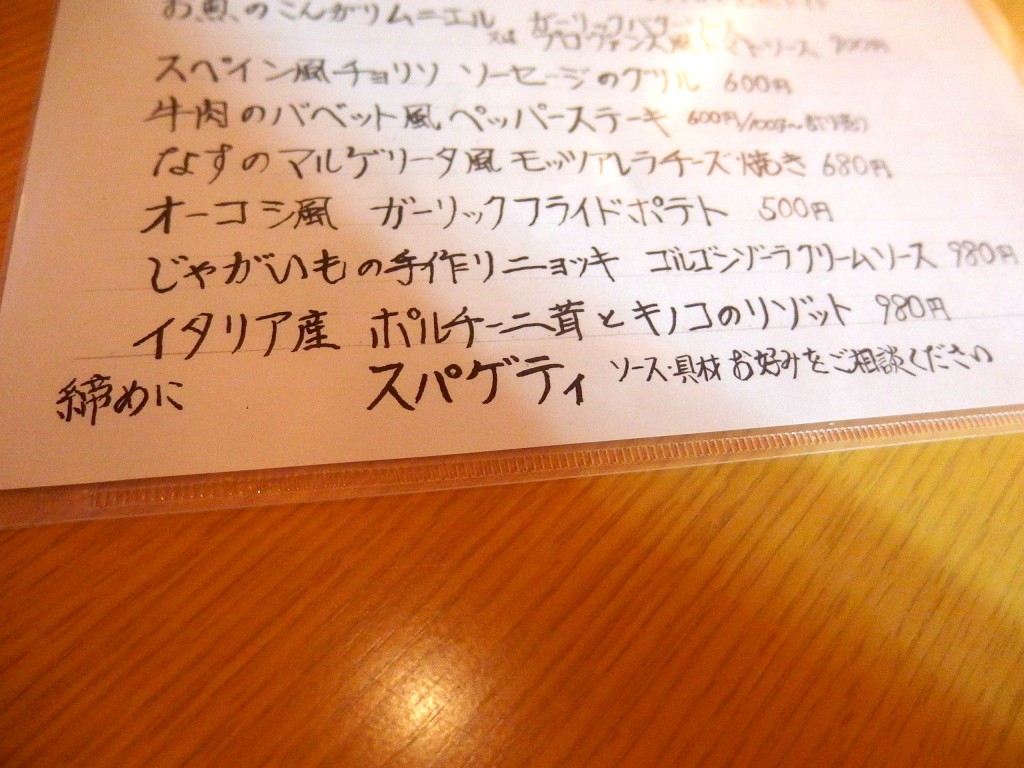 お魚のこんがりムニエル 又は ガーリックバターソース
プロヴァンス風トマトソース
スペイン風チョリソ ソーセージのグリル 600円
牛肉のバベット風ペッパーステーキ 600円/100g〜
なすのマルゲリータ風 モッツァレラチーズ焼き 680円
オーコシ風 ガーリックフライドポテト 500円
じゃがいもの手作りニョッキ ゴルゴンゾーラクリームソース 980円
イタリア産 ポルチーニ茸とキノコのリゾット 980円
締めに スパゲティ ソース・具材お好みをご相談ください